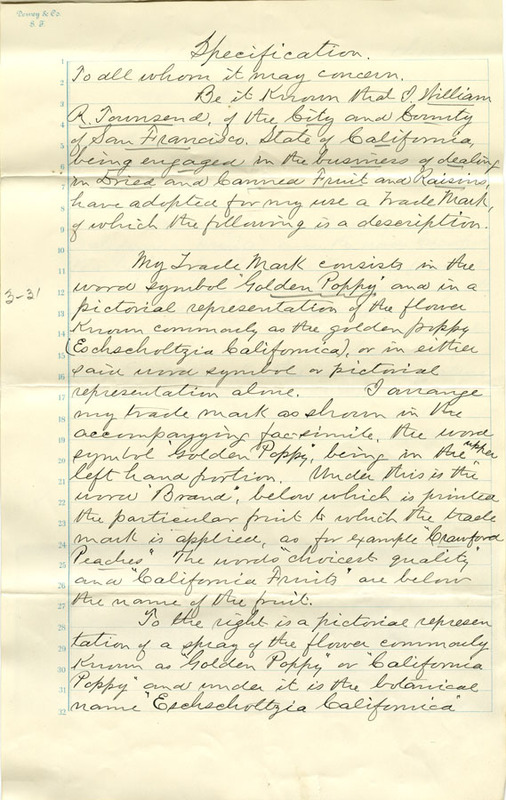 Dewey & Co.
S. F.
Specification.
1
To all whom it may concern.
2
Be it Known that I, William
3
R. Townsend, of the City and County
4
of San Francisco, State of California,
5
being engaged in the business of dealing
6
in Dried and Canned Fruit and Raisins,
7
have adopted for my use a Trade Mark,
8
of which the following is a description.
9
10
My Trade Mark consists in the
11
word symbol "Golden Poppy" and in a
12
3-31
pictorial representation of the flower
13
Known commonly as the golden poppy
14
(Eschscholtzia Californica), or in either
15
said word symbol or pictorial
16
representation alone. I arrange
17
my trade mark as shown in the
18
accompanying fac-simile, the word
19
symbol "Golden Poppy", being in the upper
20
left hand portion. Under this is the
21
word "Brand", below which is printed
22
the particular fruit to which the trade
23
mark is applied, as for example "Crawford
24
Peaches" The words "choicest quality"
25
and "California Fruits" are below
26
the name of the fruit.
27
To the right is a pictorial represen
28
tation of a spray of the flower commonly
29
Known as "Golden Poppy" or "California
30
Poppy" and under it is the botanical
31
name "Eschscholtzia Californica"
32